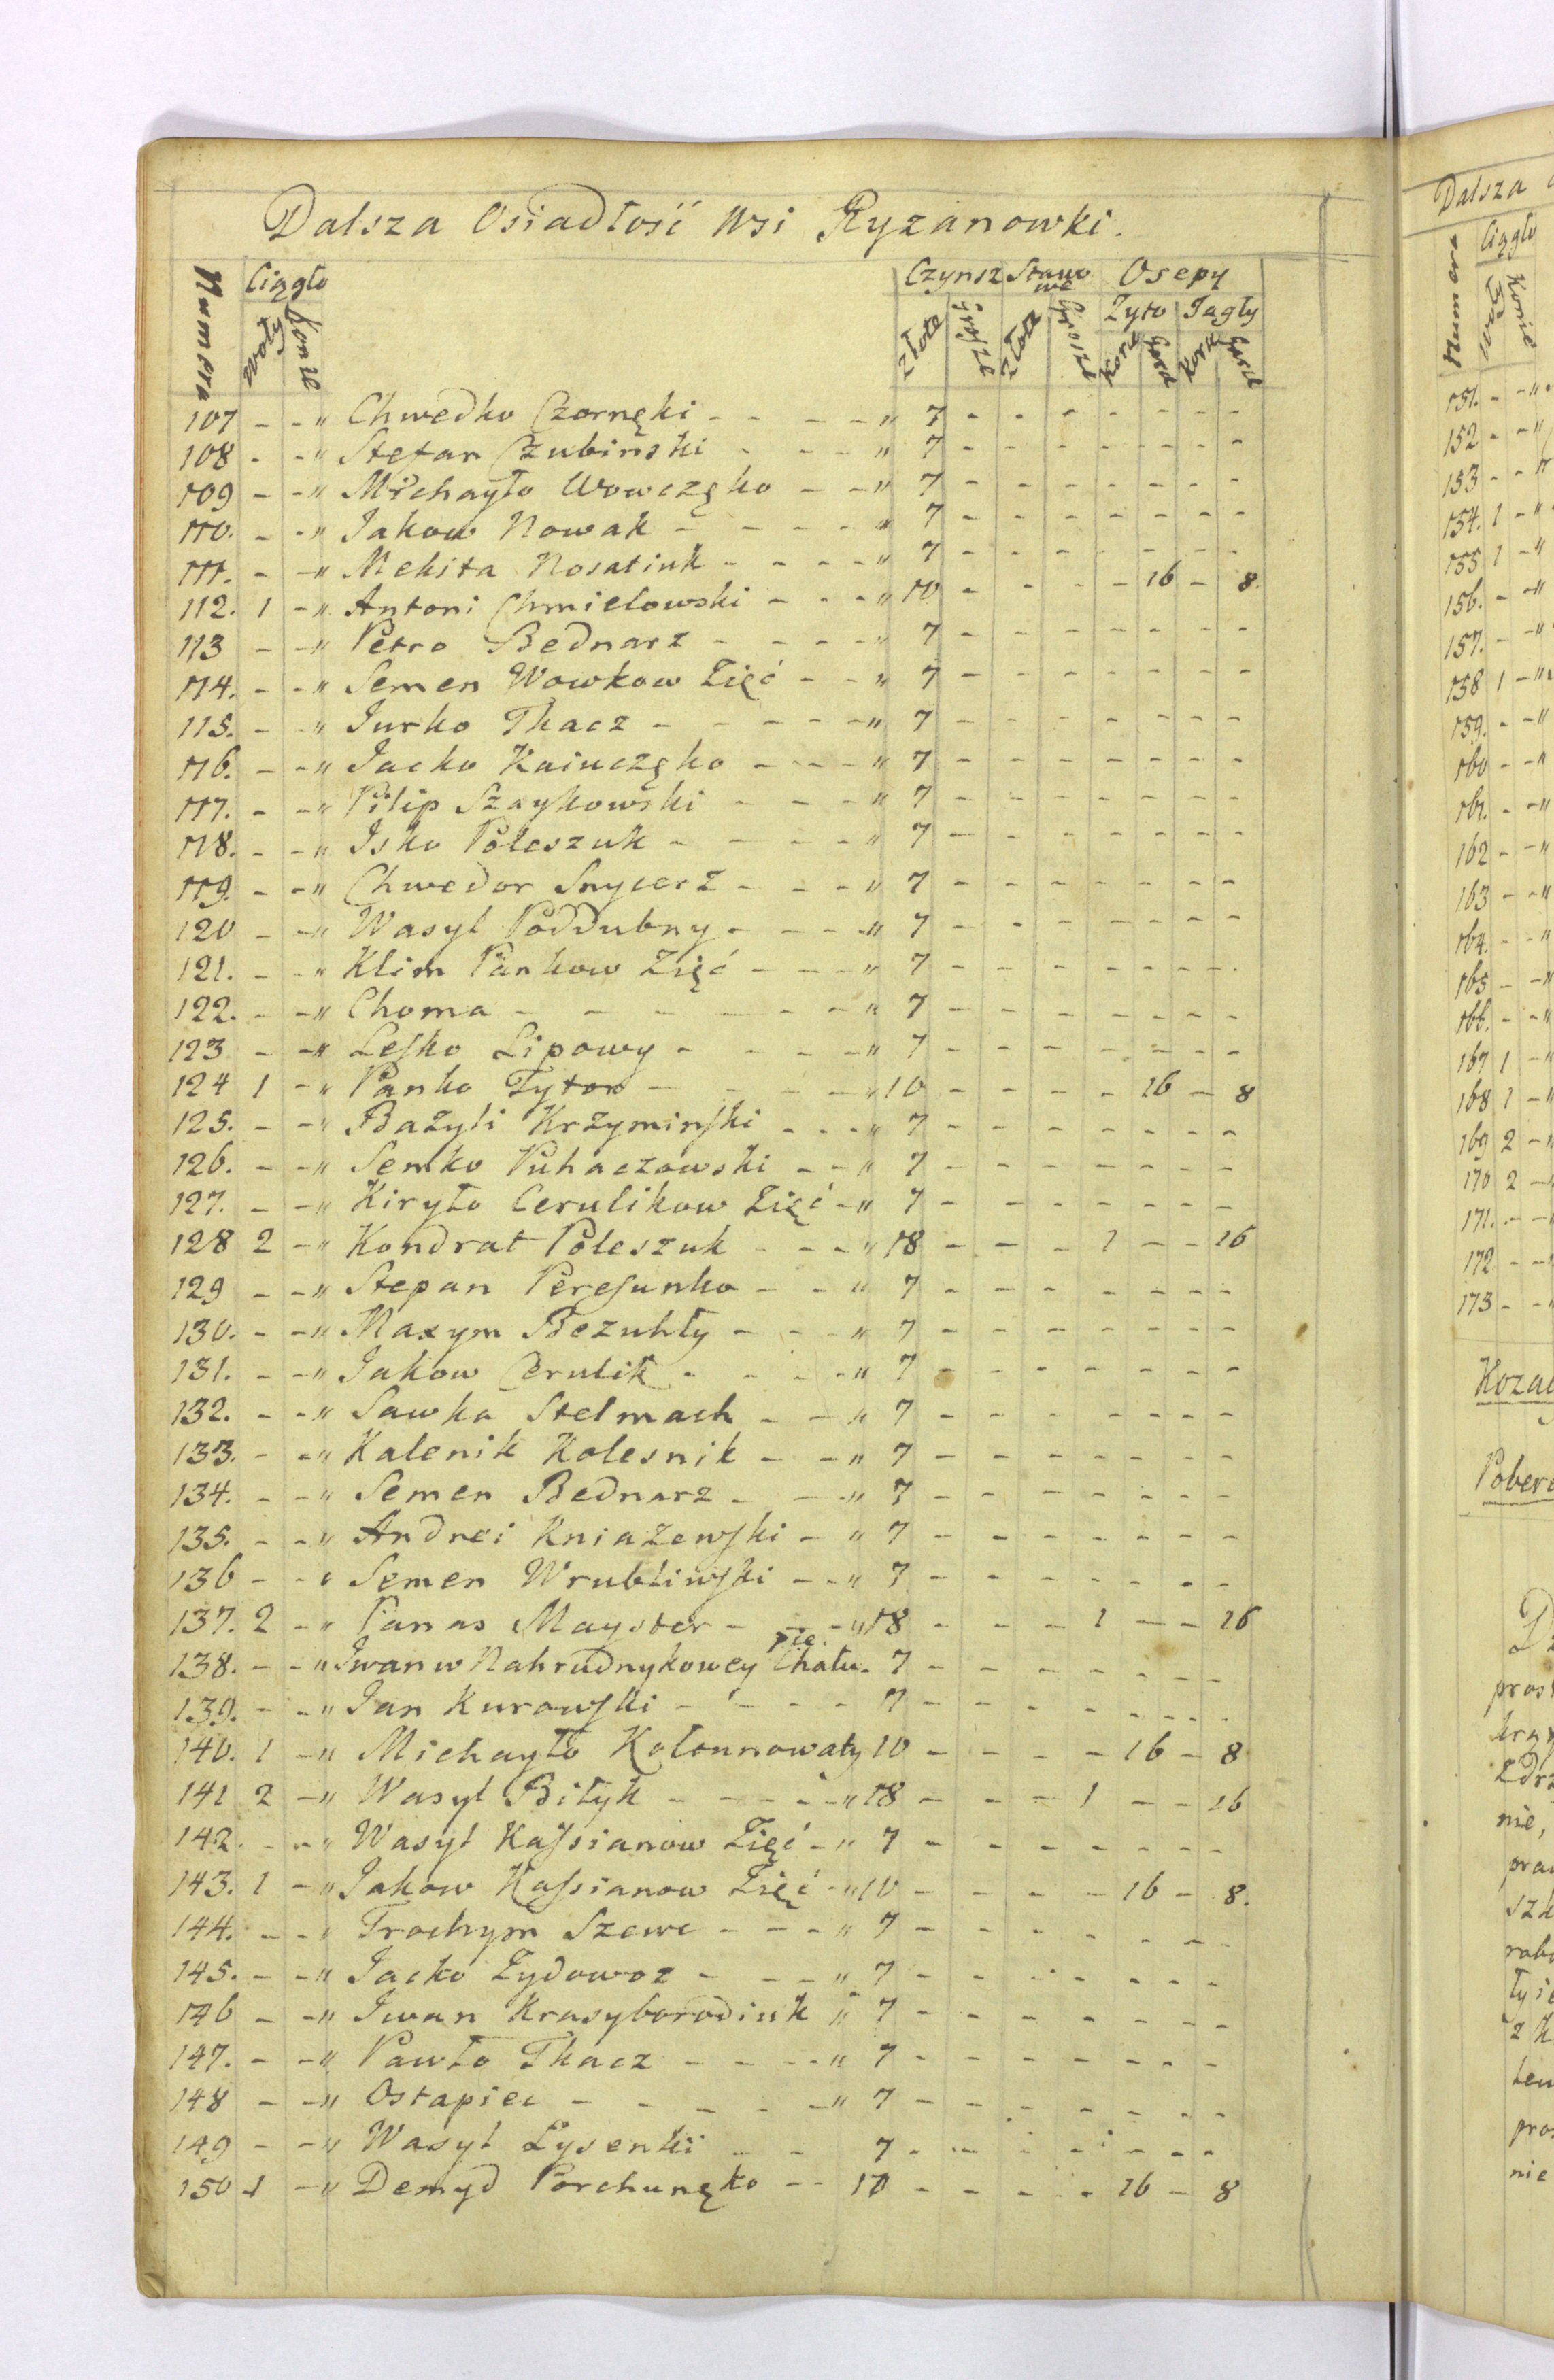 Dalsza Osiadłość Wsi Ryzanowki.
Numera Ciągło Czynsz Stawowe Osepy
Woły Konie Złote Grosze Złote Grosze Zyto Jagły
Korce Garce Korce Garce
107 - - " Chwedko Czornęki - - - - " 7 - - - - - - -
108 - - " Stefan Czubiński - - - " 7 - - - - - - -
109 - - " Michayło Wowczęko - - " 7 - - - - - - -
110. - - " Jakow Nowak - - - - " 7 - - - - - - -
111. - - " Mekita Nosatiuk - - - - " 7 - - - - - - -
112. 1 - " Antoni Chmielowski - - - " 10 - - - - 16 - 8.
113 - - " Petro Bednarz - - - - " 7 - - - - - - -
114. - - " Semen Wowkow Zięć - - " 7 - - - - - - -
115. - - " Jurko Tkacz - - - - - " 7 - - - - - - -
116. - - " Jacko Kaiuczęko - - - - " 7 - - - - - - -
117. - - " Pilip Szaykowski - - - " 7 - - - - - - -
118. - - " Jsko Poleszuk - - - - " 7 - - - - - - -
119. - - " Chwedor Snycerz - - - " 7 - - - - - - -
120 - - " Wasyl Poddubny - - - - " 7 - - - - - - -
121. - - " Klim Pankow Zięć - - - " 7 - - - - - - -
122. - - " Choma - - - - - - - " 7 - - - - - - -
123 - - " Leſko Lipowy - - - - " 7 - - - - - - -
124 1 - " Panko Tyton - - - - " 10 - - - - 16 - 8
125. - - " Bazyli Krzyminſki - - - " 7 - - - - - - -
126. - - " Semko Puhaczowski - - " 7 - - - - - - -
127. - - " Kiryło Cerulikow Zięć - " 7 - - - - - - -
128 2 - " Kondrat Poleszuk - - - " 18 - - - 1 - - 16
129 - - " Stepan Pereſunko - - " 7 - - - - - - -
130. - - " Maxym Bezuhły - - - " 7 - - - - - - -
131. - - " Jakow Cerulik - - - - " 7 - - - - - - -
132. - - " Sawka Stelmach - - " 7 - - - - - - -
133. - - " Kalenik Kolesnik - - " 7 - - - - - - -
134. - - " Semen Bednarz - - " 7 - - - - - - -
135. - - " Andrei Kniazewſki - " 7 - - - - - - -
136 - - " Semen Wrubliwſki - - " 7 - - - - - - -
137. 2 - " Panas Mayster - - - " 18 - - - 1 - - 16
138. - - " Jwan w Nahrudnykowey Chału- 7 - - - - - - -
pie.
139. - - " Jan Kurowſki - - - - 7 - - - - - - -
140. 1 - " Michayło Kołounowaty 10 - - - - 16 - 8
141 2 - " Wasyl Biłyk - - - - - " 18 - - - 1 - - 16
142. - - " Wasyl Kaſsianow Zięć - " 7 - - - - - - -
143. 1 - " Jakow Kaſsianow Zięć - " 10 - - - - 16 - 8.
144. - - " Trochym Szewc - - - " 7 - - - - - - -
145. - - " Jacko Zydowoz - - - " 7 - - - - - - -
146 - - " Jwan Krasyborodiuk " 7 - - - - - - -
147. - - " Pawło Tkacz - - - - " 7 - - - - - - -
148 - - " Ostapiec - - - - - " 7 - - - - - - -
149 - - " Wasyl Lysenki - - 7 - - - - - - -
150 1 - " Demyd Porchunęko - - 10 - - - - 16 - 8
Dalsza
Numera Ciągło
Konie
151. - - "
152 - - "
153 - - "
154. 1 - "
155 1 - "
156. - - "
157. - - "
158 1 - "
159. - - "
160 - - "
161. - - "
162 - - "
163 - - "
164. - - "
165 - - "
166. - - "
167 1 - "
168 1 - "
169 2 - "
170 2 -
171. - -
172 - -
173 - -
nie,
nie